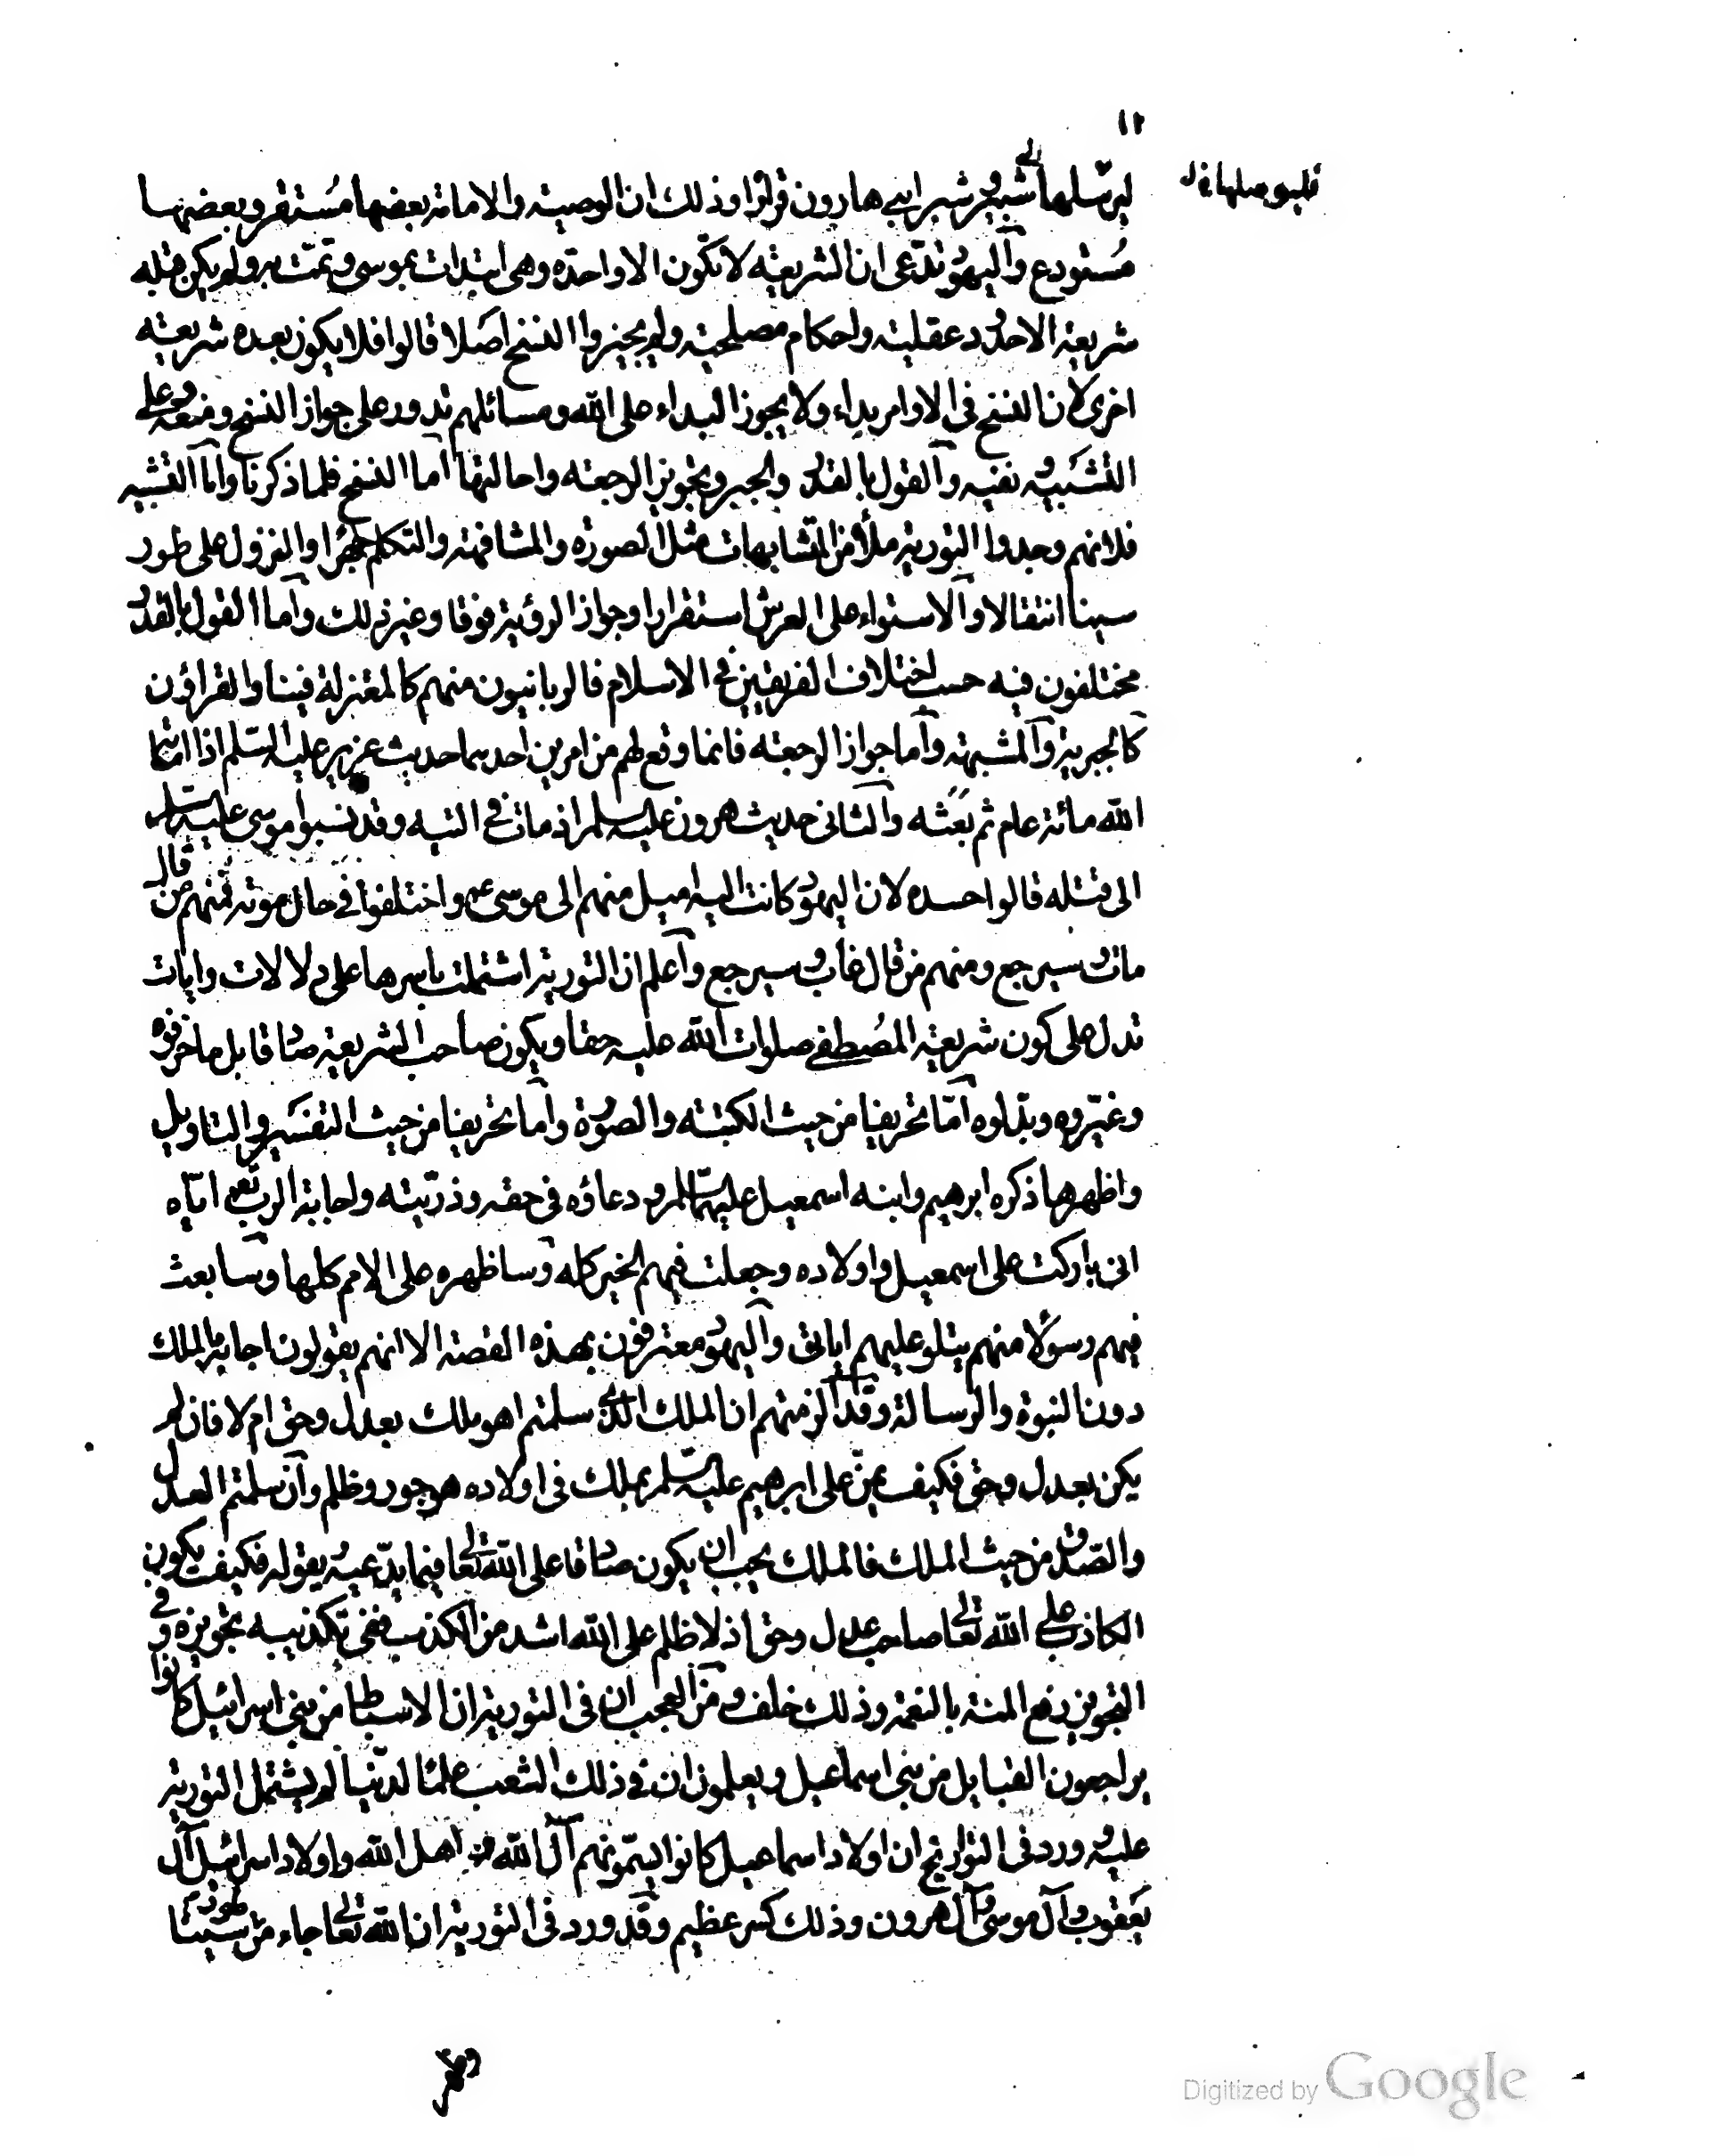 ١٢
ليرسلها الى شبير وشبر ابنى هارون قرارا وذلك ان الوصية والامامة بعضها مستقر وبعضها
مستودع واليهود تدعى ان الشريعة لا تكون الا واحدة وهى ابتدات بموسى وتمت به ولم يكن قبله
شريعة الا حدود عقلية واحكام مصلحية ولم يجيزوا النسخ اصلا قالوا فلا يكون بعده شريعة
اخرى لان النسخ فى الاوامر بداء ولا يجوز البداء على الله ومسائلهم تدور على جواز النسخ ومنعه وعلى
التشبيه ونفيه والقول بالقدر والجبر وتجويز الرجعة واحالتها اما النسخ فلما ذكرنا واما التشبيه
فلانهم وجدوا التورية ملأ من المتشابهات مثل الصورة والمشافهة والتكلم جهرا والنزول على طور
سينا انتقالا والاستواء على العرش استقرارا وجواز الرؤية فوقا وغير ذلك واما القول بالقدر
مختلفون فيه حسب اختلاف الفريقين فى الاسلام فالربانيون منهم كالمعتزلة فينا والقراؤن
كالجبرية والمشبهة واما جواز الرجعة فانما وقع لهم من امرين احدهما حديث عزير عليه السلم اذا اماته
الله مائة عام ثم بعثه والثانى حديث هرون عليه السلم اذ مات فى التيه وقد نسبوا موسى عليه السلم
الى قتله قالوا حسده لان اليهود كانت اليه اميل منهم الى موسى عم واختلفوا فى حال موته فمنهم من قال
مات وسيرجع ومنهم من قال غاب وسيرجع واعلم ان التورية اشتملت باسرها على دلالات وايات
تدل على كون شريعة المصطفى صلوات الله عليه حقا ويكون صاحب الشريعة صادقا بل ما حرفوه
وغيروه وبدلوه اما تحريفا من حيث الكتبته والصورة واما تحريفا من حيث التفسير والتاويل
واظهرها ذكره ابرهيم وابنه اسمعيل عليهما السلم ودعاؤه فى حقه وذريته واجابة الرب تعم اياه
انى باركت على اسمعيل واولاده وجعلت فيهم الخير كله وساظهره على الامم كلها وسابعث
فيهم رسولا منهم يتلو عليهم اياتى واليهود معترفون بهذه القصة الا انهم يقولون اجابه بالملك
دون النبوة والرسالة وقد الزمتهم ان الملك الذى سلمتم اهو ملك بعدل وحق ام لا فان لم
يكن بعدل وحق فكيف يمن على ابرهيم عليه السلم بملك فى اولاده هو جور وظلم وان سلمتم العدل
والصدق من حيث الملك فالملك يجب ان يكون صادقا على الله تعالى فيما يدعيه ويقوله فكيف يكون
الكاذب على الله تعالى صاحب عدل وحق اذ لا ظلم على الله اشد من الكذب ففى تكذيبه تجويزه وفى
التجويز رفع المنة بالنعمة وذلك خلف ومن العجب ان فى التورية ان الاسباط من بنى اسرائيل كانوا
يراجعون القبايل من بنى اسماعيل ويعلمون ان فى ذلك الشعب علما لدنيا لم يشتمل التورية
عليه وورد فى التواريخ ان اولاد اسماعيل كانوا يسمونهم آل الله واهل الله واولاد اسرائيل آل
يعقوب وآل موسى وآل هرون وذلك كسر عظيم وقد ورد فى التورية ان الله تعالى جاء من طور سينا